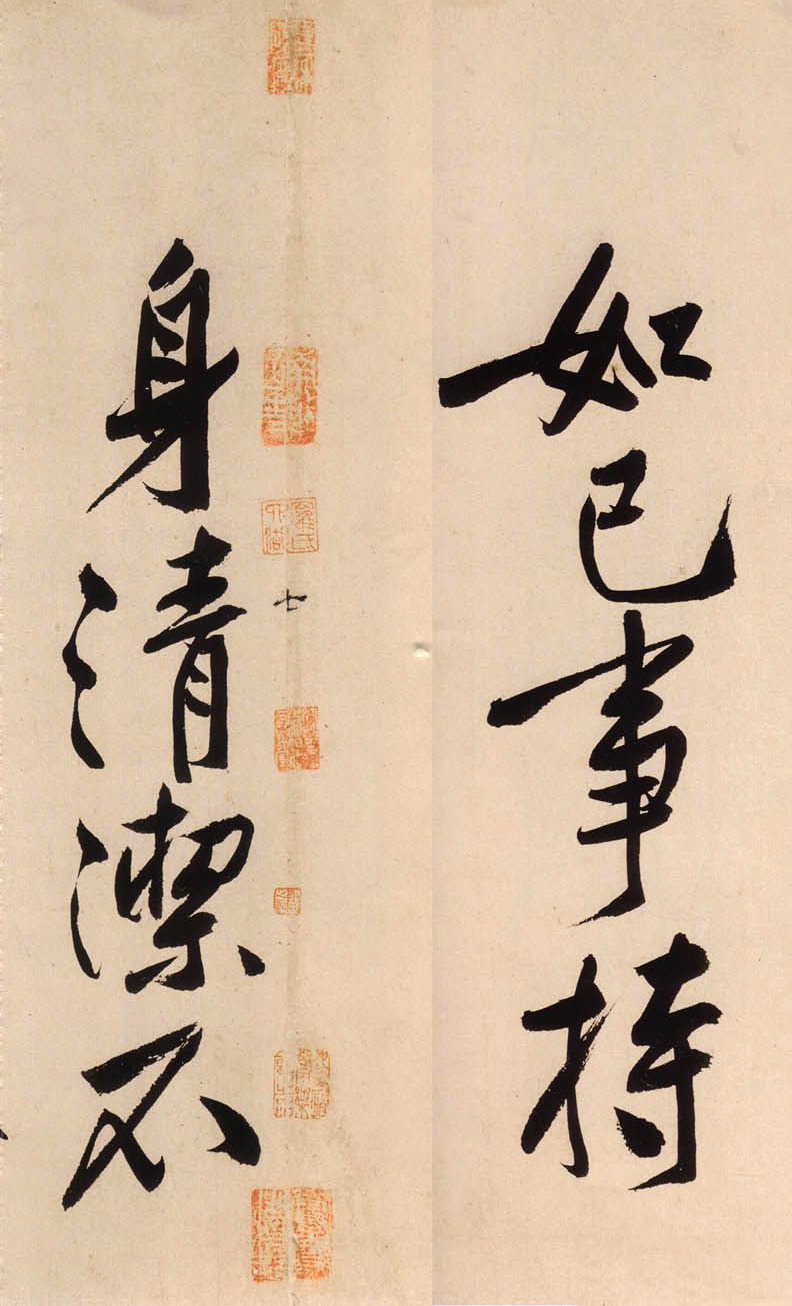 如己事持
身清潔不
七